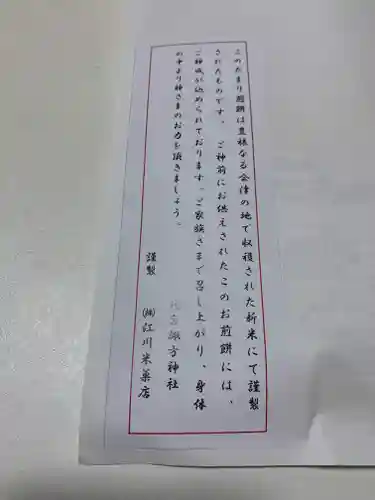 このたまり煎餅は豊穣なる会津の地で収穫された新米にて謹製
されたものです。 ご神前にお供えされたこのお煎餅には、
ご神威が込められております。ご家族さまで召し上がり、身体
の中より神さまのお力を頂きましょう。
諏方神社
謹製 ㈱江川米菓店